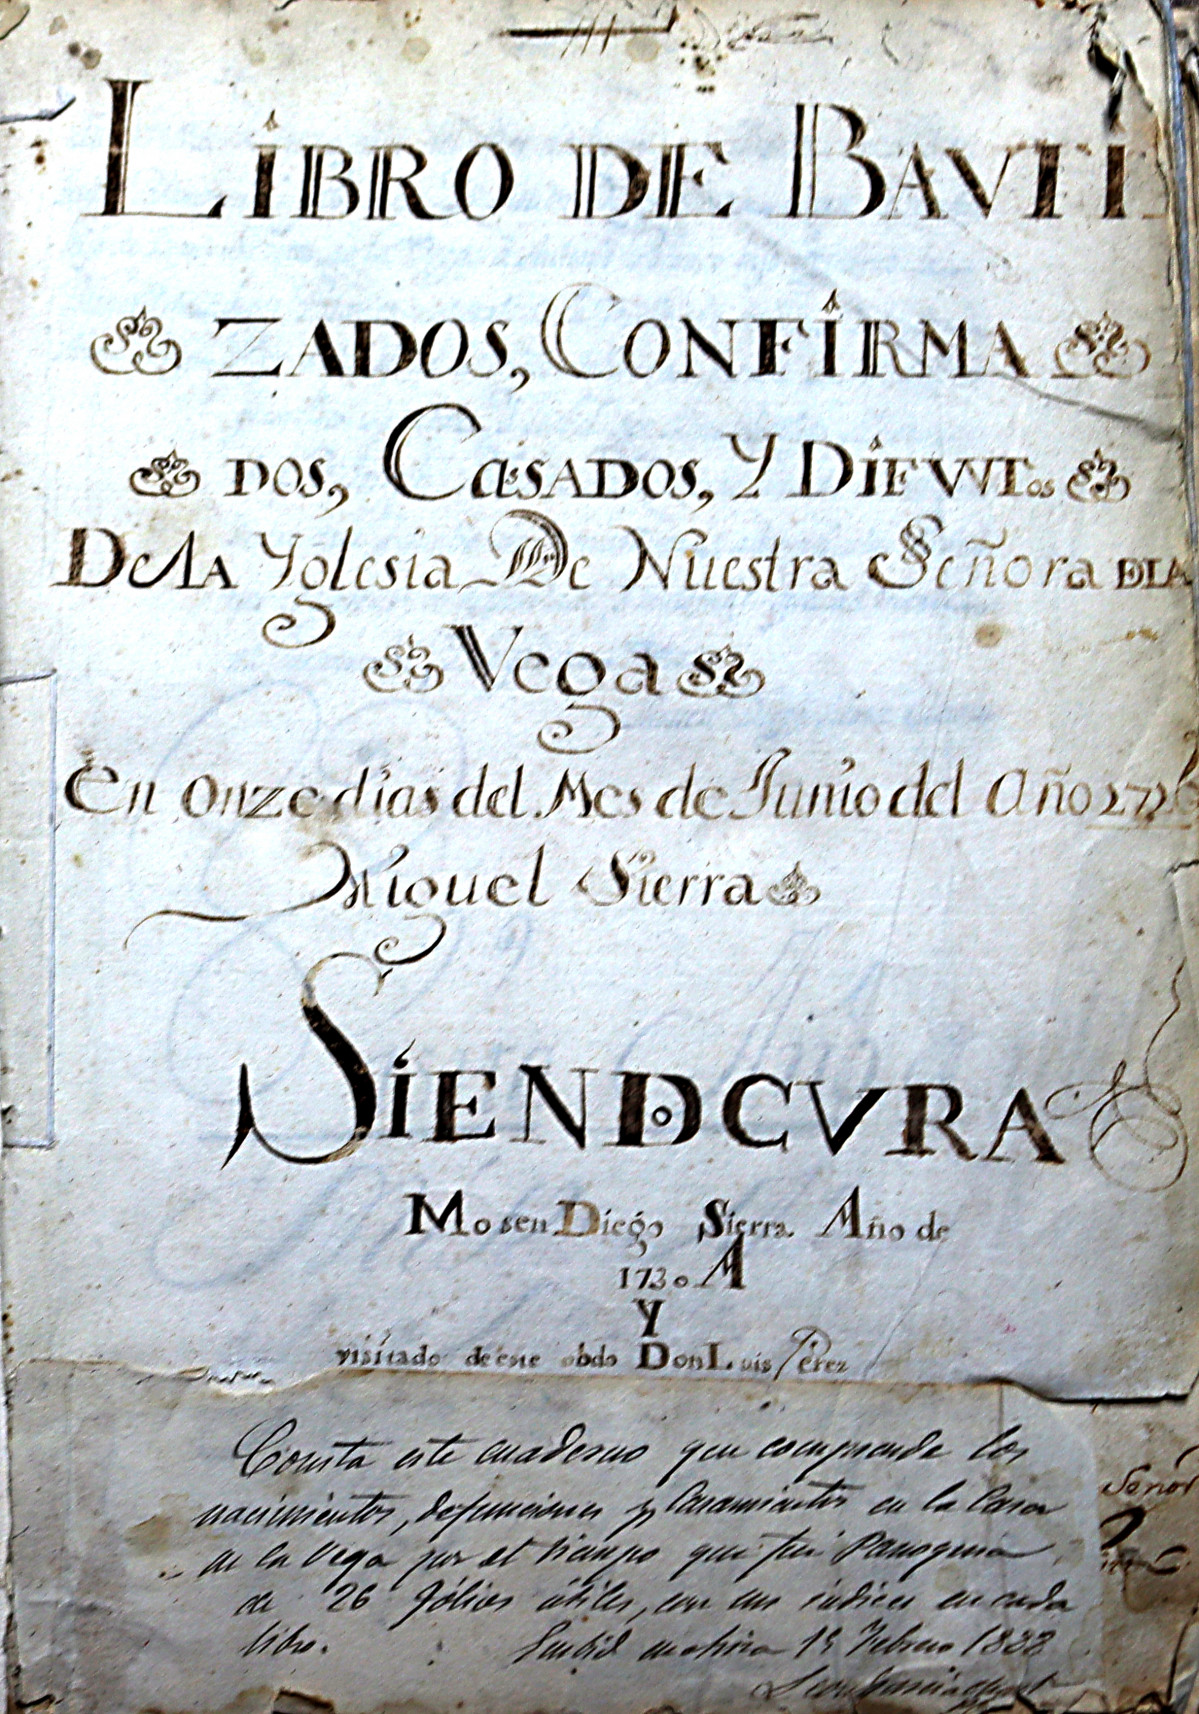 LIBRO DE BAUTI
ZADOS, CONFIRMA
DOS, CASADOS, Y DIFVNTos
DeLA Yglesia De Nuestra Señora DLA
Vega
En onze dias del Mes de Junio del Año 1726
Miguel Sierra
SIENDo CVRA
Mosen Diego Sierra Año de
1730 A
Y
visitado de este obdo Don Luis Perez
Consta este cuaderno que comprende los
nacimientos, defunciones y Casamientos en la Casa
de la Vega por el tiempo que fué Parroquia
de 26 fólios útiles, con un indice en cada
libro.
19 Febrero 1888
Señor